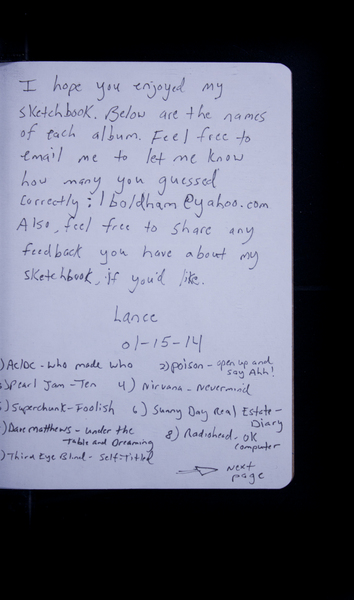 I hope you enjoyed my
sketchbook. Below are the names
of each album. Feel free to
email me to let me know
how many you guessed
correctly: lboldham@yahoo.com
Also, feel free to share any
feedback you have about my
sketchbook, if you'd like.
Lance
01-15-14
)AC/DC - Who made who 2)Poison - open up and
say Ahh!
)Pearl Jam - Ten 4) Nirvana - Nevermind
)Superchunk - Foolish 6) Sunny Day Real Estate -
Diary
)Dave matthews - under the
Table and Dreaming
8) Radiohead - OK
computer
)Third Eye Blind - Self-Titled
next
page